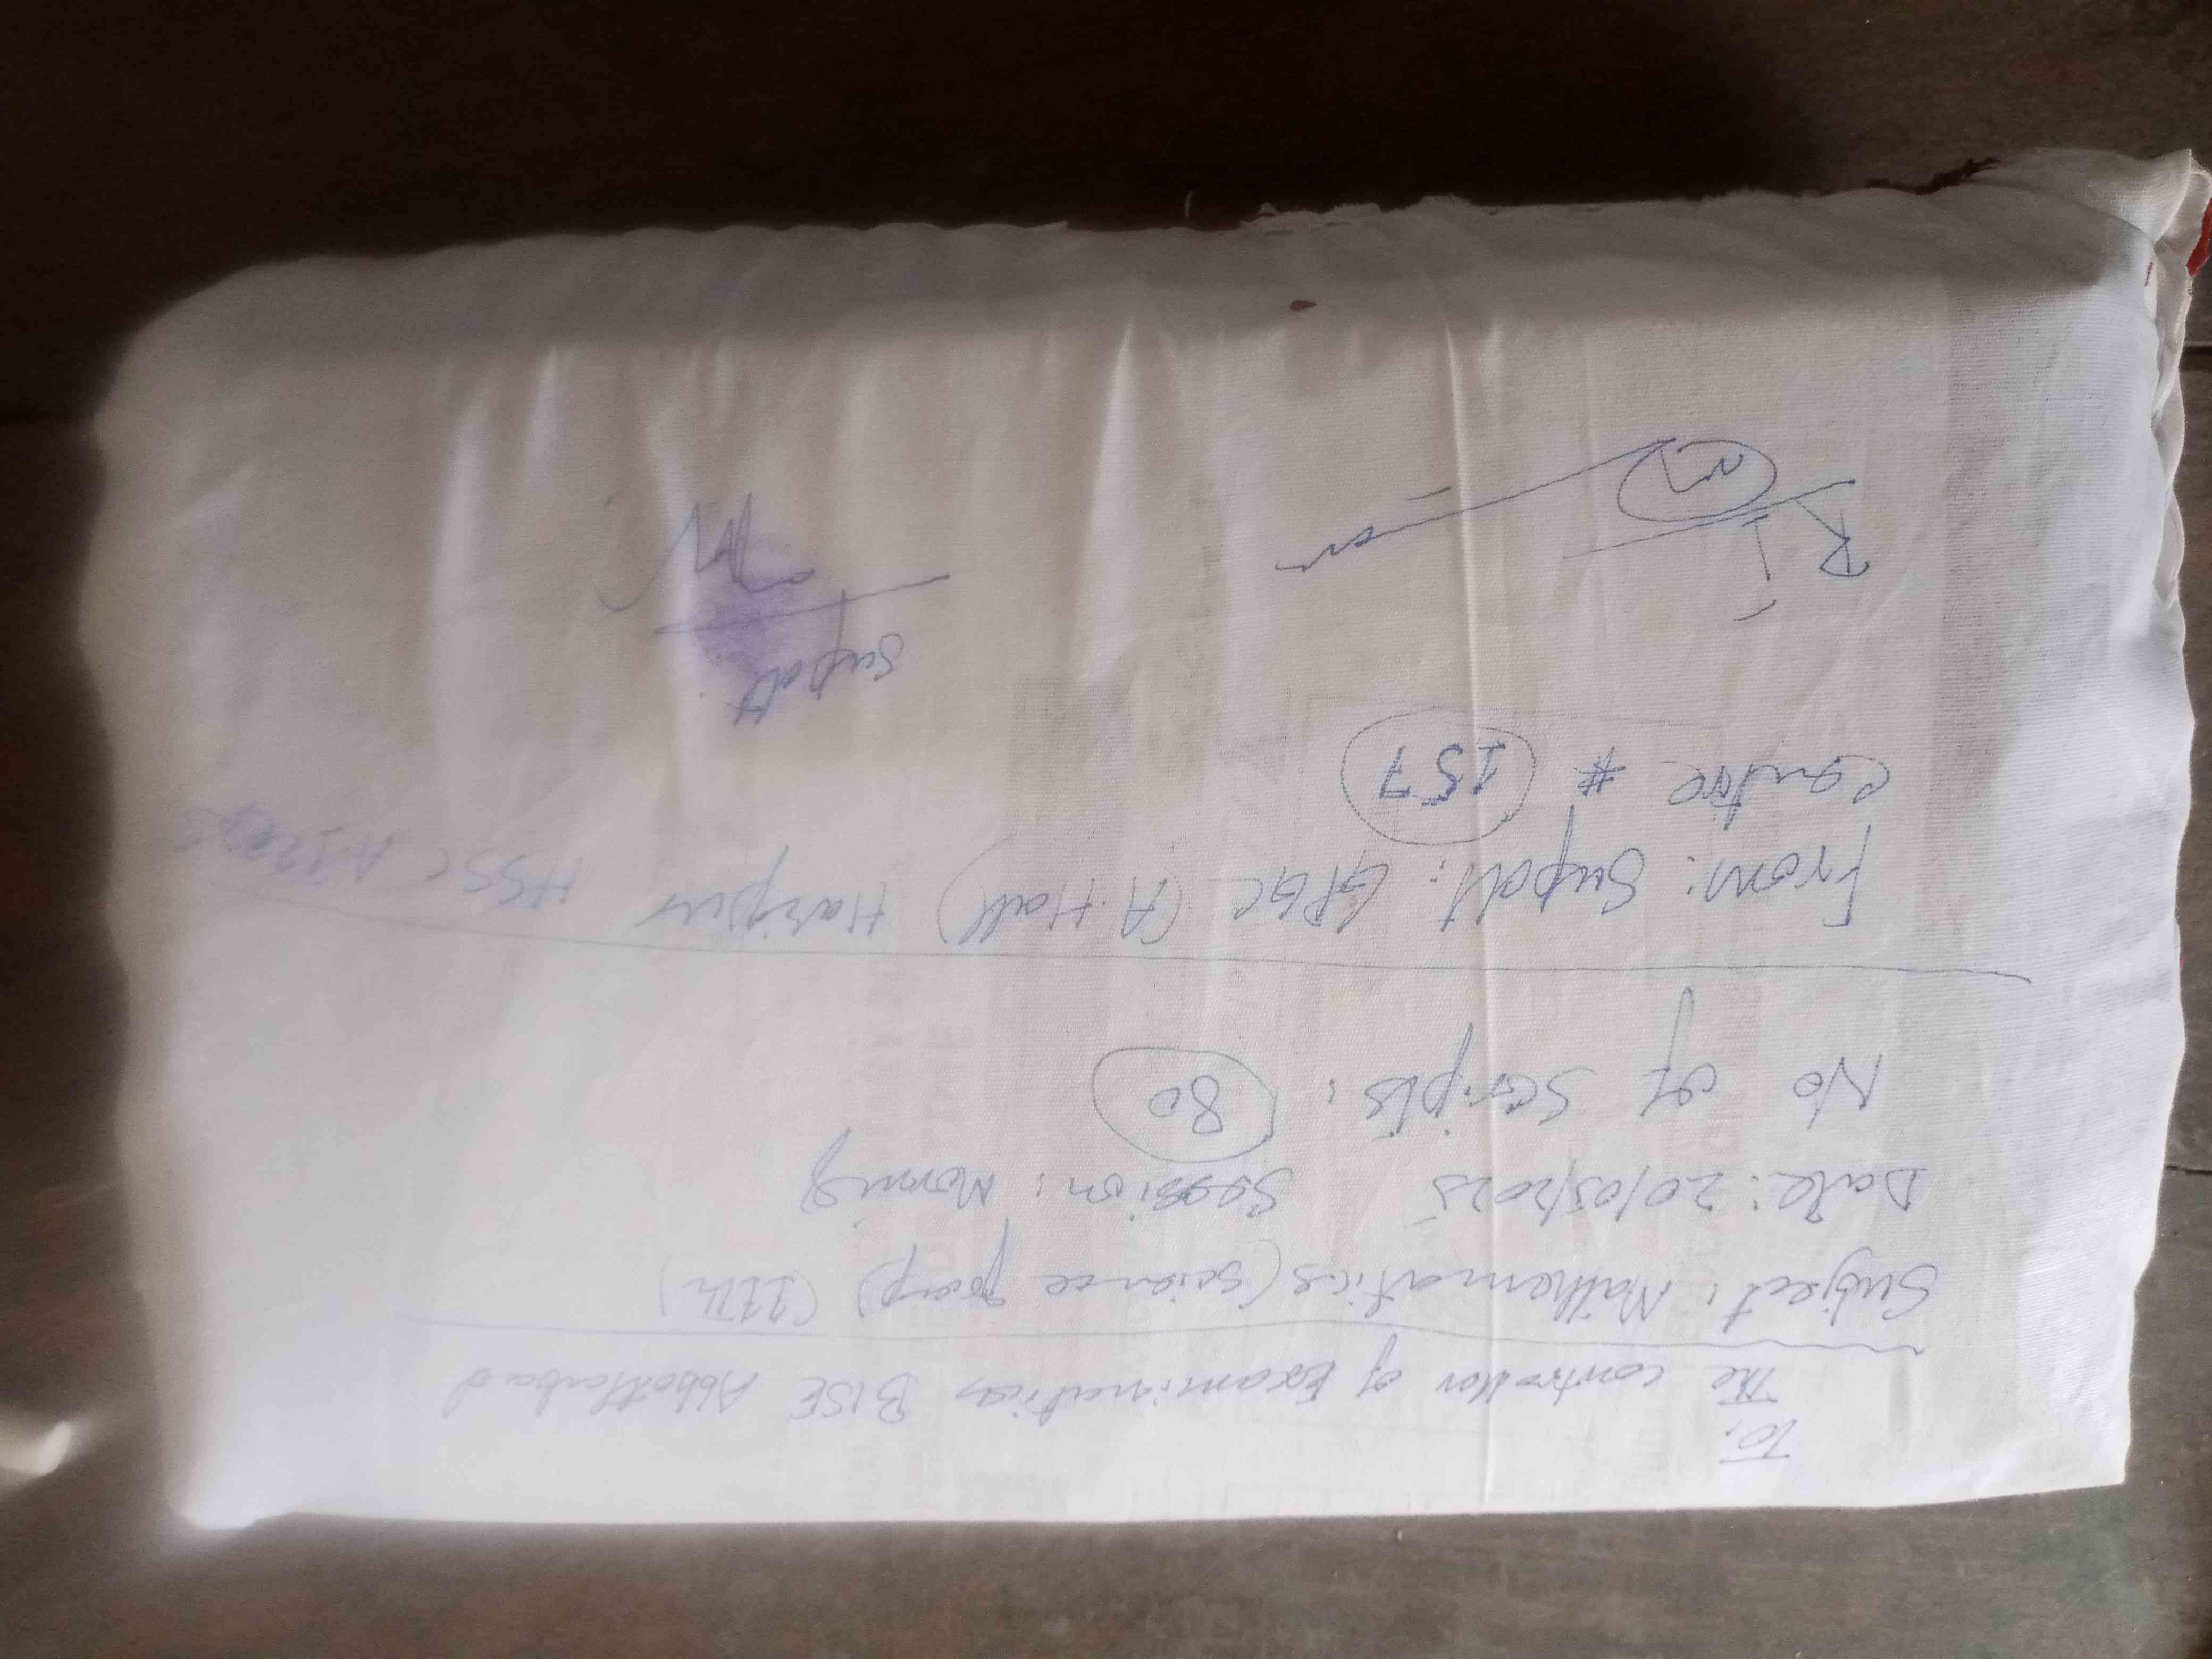 To,
The controller of Examination BISE Abbottabad
Subject: Mathematics (Science group) (11th)
Date: 20/05/2025 Session: Morning
No of Scripts: 80
From: Supdtt: GPGC (A-Hall) Haripur HSSC
Centre # 157
Supdtt
R.I